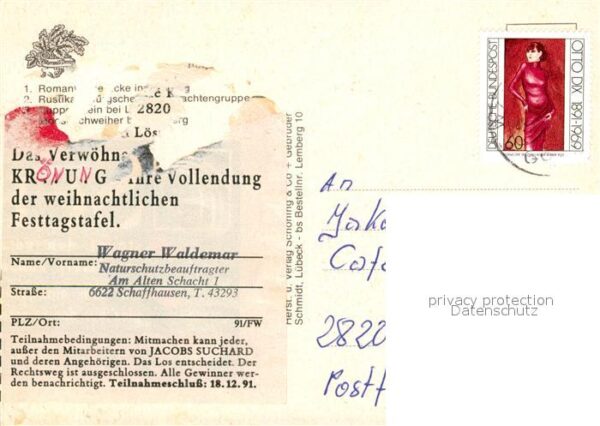 1. Roman
2. Rustika
2820
Lös
Das Verwöhn
KRÖNUNG Ihre Vollendung
der weihnachtlichen
Festtagstafel.
Wagner Waldemar
Name/Vorname: Naturschutzbeauftragter
Am Alten Schacht 1
Straße: 6622 Schaffhausen, T. 43293
PLZ/Ort: 91/FW
Teilnahmebedingungen: Mitmachen kann jeder,
außer den Mitarbeitern von JACOBS SUCHARD
und deren Angehörigen. Das Los entscheidet. Der
Rechtsweg ist ausgeschlossen. Alle Gewinner wer-
den benachrichtigt. Teilnahmeschluß: 18.12.91.
Herst. u. Verlag Schöning & Co + Gebrüder
Schmidt, Lübeck - bs Bestellnr. Lemberg 10
DEUTSCHE BUNDESPOST
60
OTTO DIX 1891-1969
An
Jako
2820
Postf
privacy protection
Datenschutz